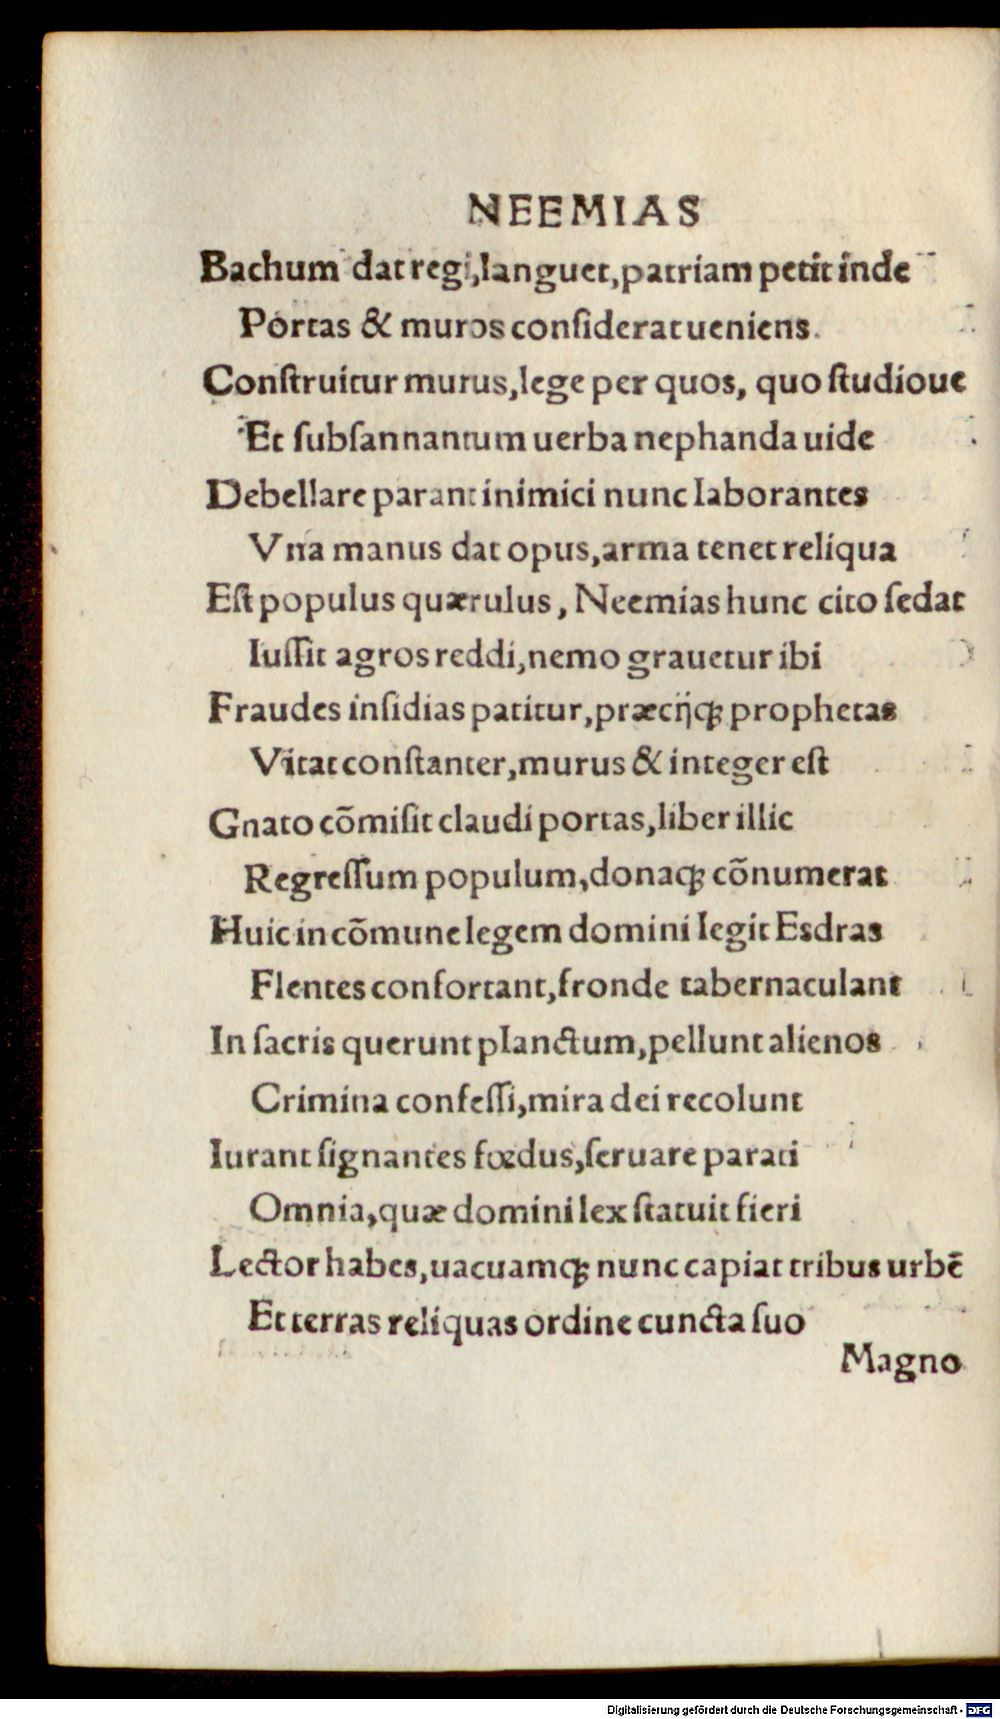 NEEMIAS
Bachum dat regi,languet,patriam petit inde
Portas & muros considerat ueniens.
Construitur murus,lege per quos, quo studioue
Et subsannantum uerba nephanda uide
Debellare parant inimici nunc laborantes
Vna manus dat opus,arma tenet reliqua
Est populus quærulus, Neemias hunc cito sedat
Iussit agros reddi,nemo grauetur ibi
Fraudes insidias patitur,præcijq; prophetas
Vitat constanter,murus & integer est
Gnato cõmisit claudi portas,liber illic
Regressum populum,donaq; cõnumerat
Huic in cõmune legem domini legit Esdras
Flentes confortant,fronde tabernaculant
In sacris querunt planctum,pellunt alienos
Crimina confessi,mira dei recolunt
Iurant signantes fœdus,seruare parati
Omnia,quæ domini lex statuit fieri
Lector habes,uacuamq; nunc capiat tribus urbẽ
Et terras reliquas ordine cuncta suo
Magno
Digitalisierung gefördert durch die Deutsche Forschungsgemeinschaft - DFG